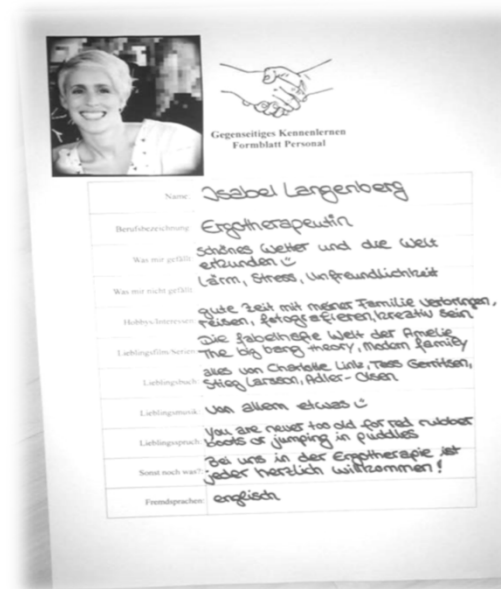 Gegenseitiges Kennenlernen
Formblatt Personal
Name: Isabel Langenberg
Berufsbezeichnung: Ergotherapeutin
Was mir gefällt: Schönes Wetter und die Welt
erkunden
Was mir nicht gefällt: Lärm, Stress, Unfreundlichkeit
Hobbys/Interessen: gute Zeit mit meiner Familie verbringen,
reisen, fotografieren, kreativ sein
Lieblingsfilm/Serien: Die fabelhafte Welt der Amelie
The big bang theory, Modern family
Lieblingsbuch: alles von Charlotte Link, Tess Gerritsen,
Stieg Larsson, Adler-Olsen
Lieblingsmusik: von allem etwas
Lieblingsspruch: You are never too old for red rubber
boots or jumping in puddles
Sonst noch was?: Bei uns in der Ergotherapie ist
jeder herzlich willkommen!
Fremdsprachen: englisch